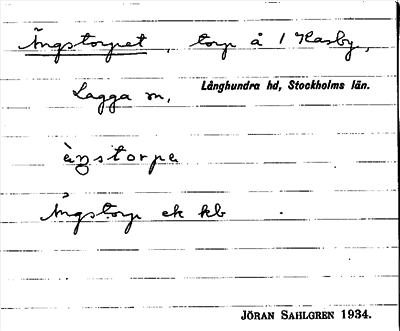 Ängstorpet, torp å 1 Kasby,
Lagga sn, Långhundra hd, Stockholms län.
ä̀ŋstorpe
Ängstorp ek kb
JÖRAN SAHLGREN 1934.